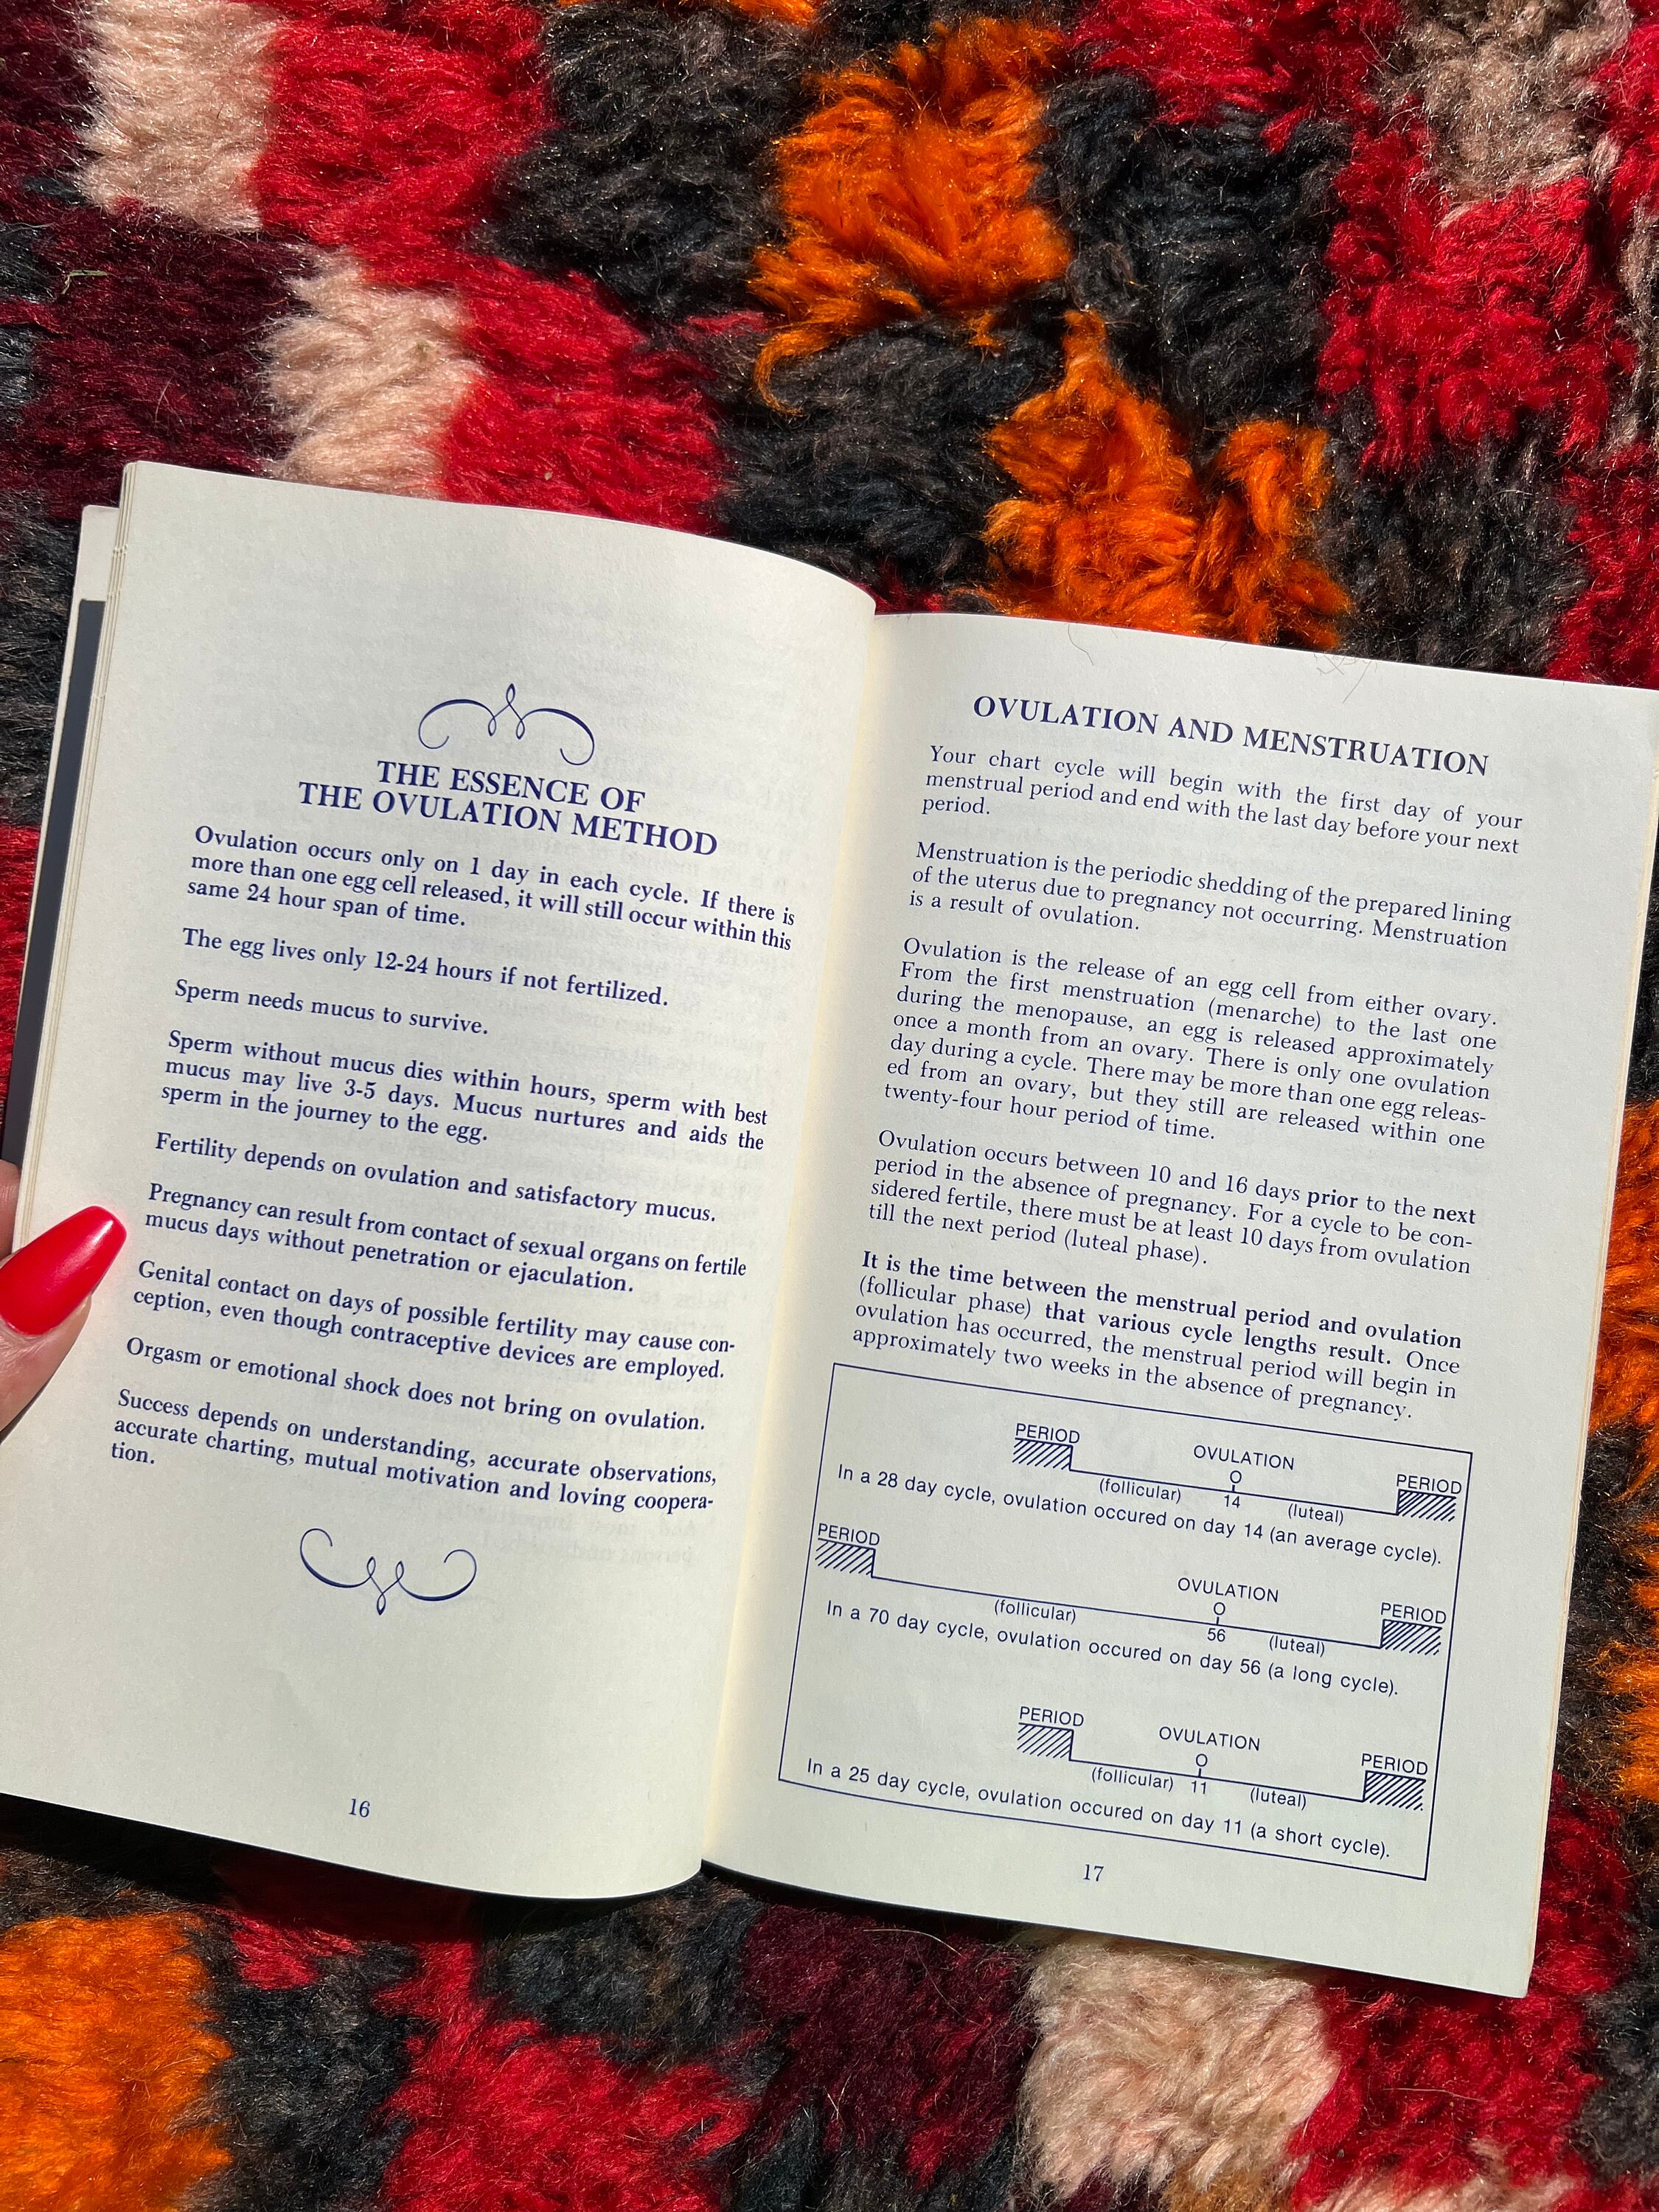 THE ESSENCE OF
THE OVULATION METHOD
Ovulation occurs only on 1 day in each cycle. If there is
more than one egg cell released, it will still occur within this
same 24 hour span of time.
The egg lives only 12-24 hours if not fertilized.
Sperm needs mucus to survive.
Sperm without mucus dies within hours, sperm with best
mucus may live 3-5 days. Mucus nurtures and aids the
sperm in the journey to the egg.
Fertility depends on ovulation and satisfactory mucus.
Pregnancy can result from contact of sexual organs on fertile
mucus days without penetration or ejaculation.
Genital contact on days of possible fertility may cause con-
ception, even though contraceptive devices are employed.
Orgasm or emotional shock does not bring on ovulation.
Success depends on understanding, accurate observations,
accurate charting, mutual motivation and loving coopera-
tion.
16
OVULATION AND MENSTRUATION
Your chart cycle will begin with the first day of your
menstrual period and end with the last day before your next
period.
Menstruation is the periodic shedding of the prepared lining
of the uterus due to pregnancy not occurring. Menstruation
is a result of ovulation.
Ovulation is the release of an egg cell from either ovary.
From the first menstruation (menarche) to the last one
during the menopause, an egg is released approximately
once a month from an ovary. There is only one ovulation
day during a cycle. There may be more than one egg releas-
ed from an ovary, but they still are released within one
twenty-four hour period of time.
Ovulation occurs between 10 and 16 days prior to the next
period in the absence of pregnancy. For a cycle to be con-
sidered fertile, there must be at least 10 days from ovulation
till the next period (luteal phase).
It is the time between the menstrual period and ovulation
(follicular phase) that various cycle lengths result. Once
ovulation has occurred, the menstrual period will begin in
approximately two weeks in the absence of pregnancy.
PERIOD
OVULATION
PERIOD
(follicular)
14
(luteal)
In a 28 day cycle, ovulation occured on day 14 (an average cycle).
PERIOD
OVULATION
PERIOD
(follicular)
56
(luteal)
In a 70 day cycle, ovulation occured on day 56 (a long cycle).
PERIOD
OVULATION
PERIOD
(follicular)
11
(luteal)
In a 25 day cycle, ovulation occured on day 11 (a short cycle).
17